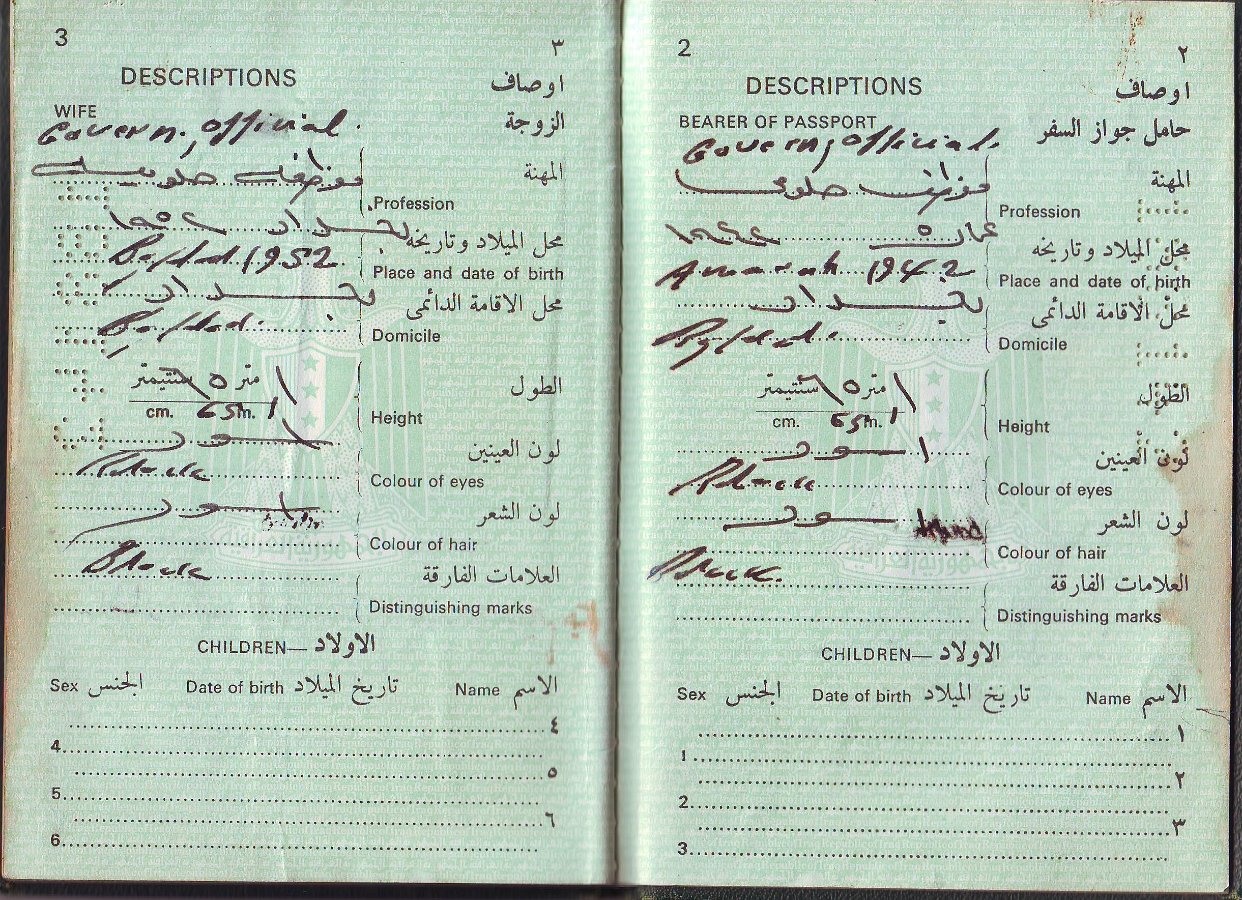 3
٣
DESCRIPTIONS
اوصاف
WIFE
الزوجة
Govern. official.
المهنة
موظفة حكومية
Profession
بغداد ١٩٥٢
محل الميلاد وتاريخه
Baghdad 1952
Place and date of birth
بغداد
محل الاقامة الدائمى
Baghdad.
Domicile
متر ٦٥ سنتيمتر
الطول
cm. 65 m. 1
Height
اسود
لون العينين
Black
Colour of eyes
اسود
لون الشعر
Colour of hair
Black
العلامات الفارقة
Distinguishing marks
CHILDREN— الاولاد
Sex الجنس Date of birth تاريخ الميلاد Name الاسم
٤
4
٥
5
٦
6
2
٢
DESCRIPTIONS
اوصاف
BEARER OF PASSPORT
حامل جواز السفر
Govern, official.
المهنة
موظف حكومي
Profession
عمارة ١٩٤٢
محل الميلاد وتاريخه
Amarah 1942
Place and date of birth
بغداد
محل الاقامة الدائمى
Baghdad.
Domicile
متر ٦٥ سنتيمتر
الطول
cm. 65 m. 1
Height
اسود
لون العينين
Black
Colour of eyes
اسود
لون الشعر
Colour of hair
Black.
العلامات الفارقة
Distinguishing marks
CHILDREN— الاولاد
Sex الجنس Date of birth تاريخ الميلاد Name الاسم
١
1
٢
2
٣
3